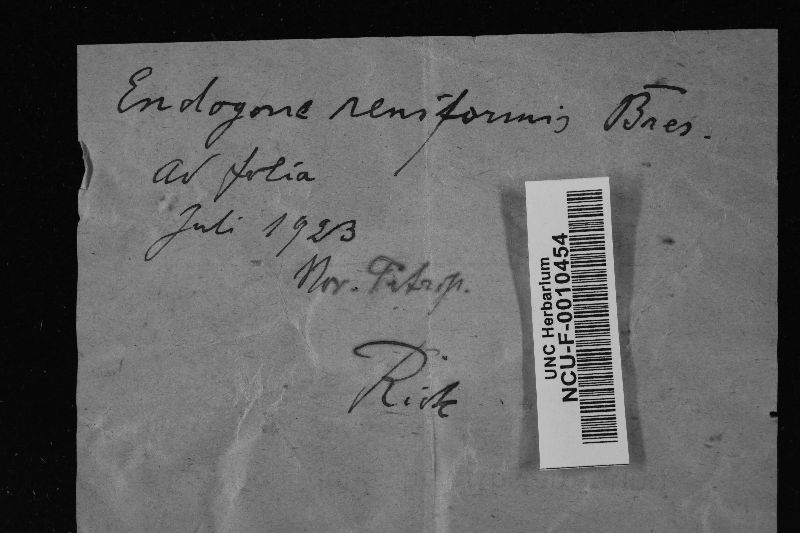 Endogone reniformis Bres.
Ad folia
Juli 1923
Nov. Petrop.
Rick
UNC Herbarium
NCU-F-0010454